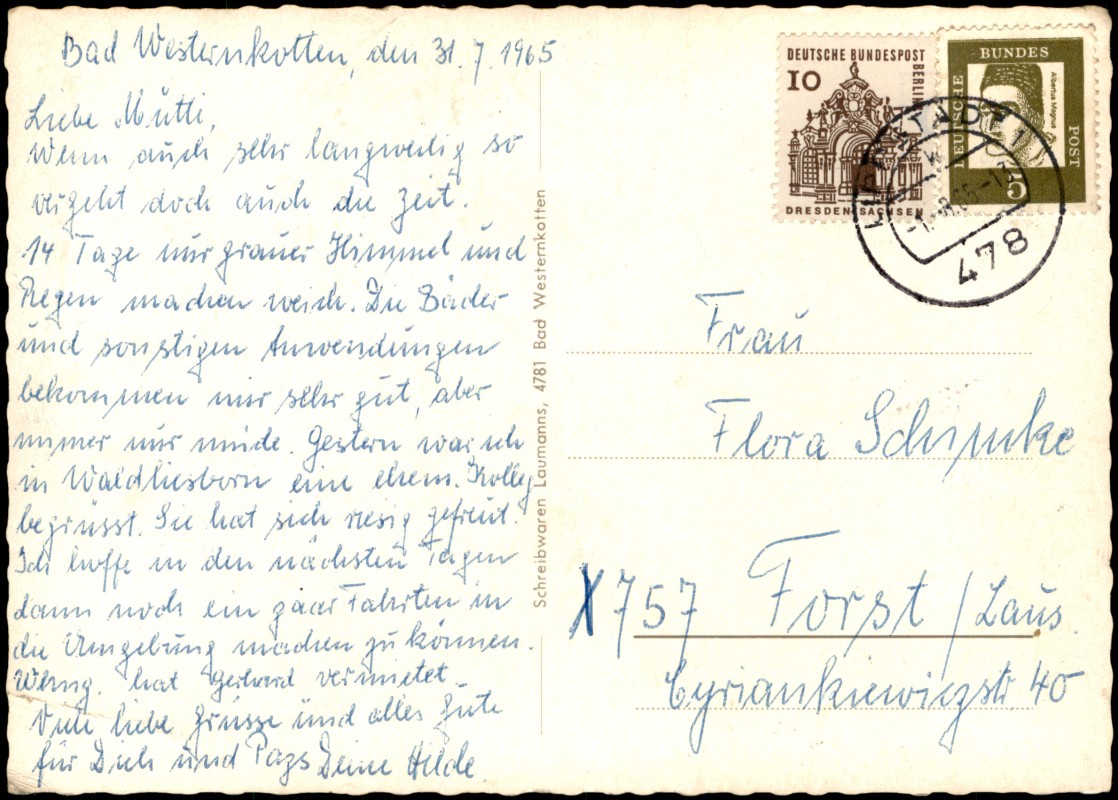 Bad Westernkotten, den 31.7.1965
Liebe Mutti,
Wenn auch sehr langweilig so
vergeht doch auch die Zeit.
14 Tage nur grauer Himmel und
Regen machen weich. Die Bäder
und sonstigen Anwendungen
bekommen mir sehr gut, aber
immer nur müde. Gestern war ich
in Waldliesborn eine ehem. Kolleg
begrüsst. Sie hat sich riesig gefreut.
Ich hoffe in den nächsten Tagen
dann noch ein paar Fahrten in
die Umgebung machen zu können.
hat Gerhard vermietet.
Viele liebe Grüsse und alles Gute
für Dich und Paps Deine Hilde
Schreibwaren Laumanns, 4781 Bad Westernkotten
DEUTSCHE BUNDESPOST
BERLIN
10
DRESDEN-SACHSEN
DEUTSCHE
BUNDES
POST
Albertus Magnus
5
LIPPSTADT 1
w
-1.-8.65-13
478
Frau
Flora
X 757 Forst / Laus
Cyriankiewiczstr 40